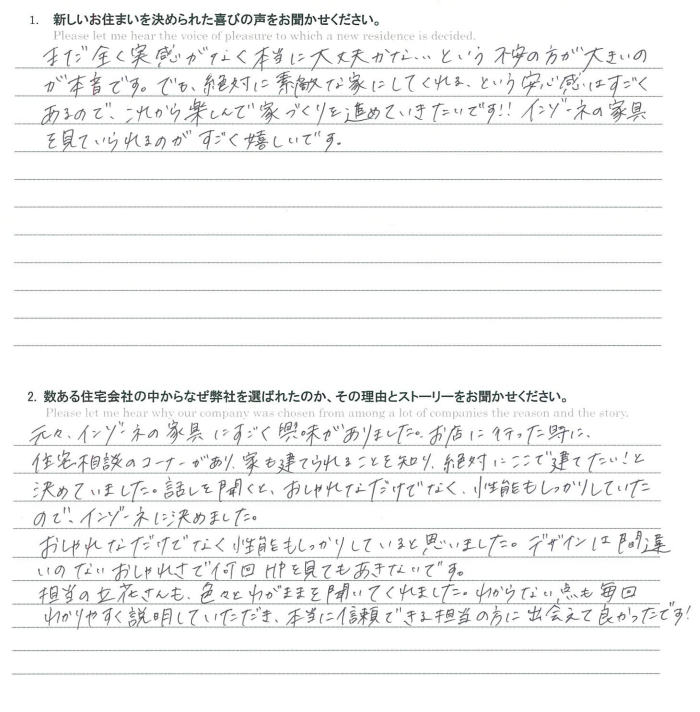 1. 新しいお住まいを決められた喜びの声をお聞かせください。
Please let me hear the voice of pleasure to which a new residence is decided.
まだ全く実感がなく本当に大丈夫かな…という不安の方が大きいの
が本音です。でも、絶対に素敵な家にしてくれる、という安心感はすごく
あるので、これから楽しんで家づくりを進めていきたいです!! インゾーネの家具
を見ていられるのがすごく嬉しいです。
2. 数ある住宅会社の中からなぜ弊社を選ばれたのか、その理由とストーリーをお聞かせください。
Please let me hear why our company was chosen from among a lot of companies the reason and the story.
元々、インゾーネの家具にすごく興味がありました。お店に行った時に、
住宅相談のコーナーがあり、家も建てられることを知り、絶対にここで建てたい!と
決めていました。話しを聞くと、おしゃれなだけでなく、性能もしっかりしていた
ので、インゾーネに決めました。
おしゃれなだけでなく性能もしっかりしていると思いました。デザインは間違
いのないおしゃれさで何回HPを見てもあきないです。
担当の立花さんも、色々とわがままを聞いてくれました。わからない点も毎回
わかりやすく説明していただき、本当に信頼できる担当の方に出会えて良かったです!